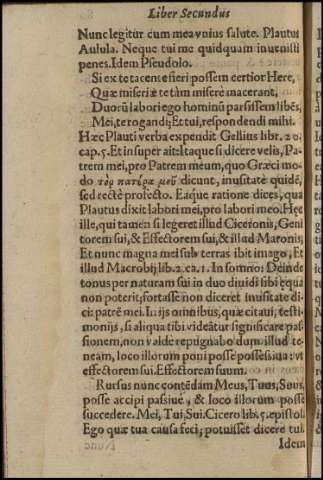 Liber Secundus
Nunc legitur cum mea vnius salute. Plautus
Aulula. Neque tui me quidquam inuenisti
penes. Idem Pseudolo.
Si ex te tacente fieri possem certior Here,
Quæ miseriæ te tàm miserè macerant,
Duorũ labori ego hominũ parsissem libẽs,
Mei, te rogandi, Et tui, respondendi mihi.
Hæc Plauti verba expendit Gellius lib. 20.
cap. 5. Et insuper ait: Itaque si dicere velis, Pa-
trem mei, pro Patrem meum, quo Græci mo-
do τὸν πατέρα μοῦ dicunt, inusitate quidẽ,
sed rectè profecto. Eaque ratione dices, qua
Plautus dixit labori mei, pro labori meo. Hęc
ille, qui tamen si legeret illud Ciceronis, Geni
torem sui, & Effectorem sui, & illud Maronis,
Et nunc magna mei sub terras ibit imago, Et
illud Macrobij lib. 2. ca. 1. In somnio: Deinde
tonus per naturam sui in duo diuidi sibi ęqua
non poterit, fortasse non diceret inusitate di-
ci: patrẽ mei. In ijs omnibus, quæ citaui, testi-
monijs, si aliqua tibi videãtur significare pas-
sionem, non valde repugnabo dum illud te-
neam, loco illorum poni posse possessiua: vt
effectorem sui. Effectorem suum.
Rursus nunc contẽdam Meus, Tuus, Suus,
posse accipi passiuè, & loco illorum posse
succedere. Mei, Tui, Sui. Cicero lib. 5. epistol.
Ego quæ tua causa feci; potuisset dicere tui.
Idem